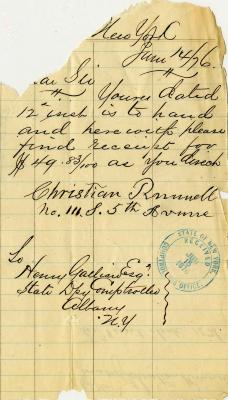 New York
Jan 14/76.
Dear Sir
Yours dated
12" inst is to hand
and herewith please
find Receipt for
$49.83/100 as you
Christian
No. 111. S. 5th Avenue
To
Henry Gallien Esqr.
State Dpy Comptroller
Albany
N.Y
STATE OF NEW YORK
RECEIVED
JAN
OFFICE.